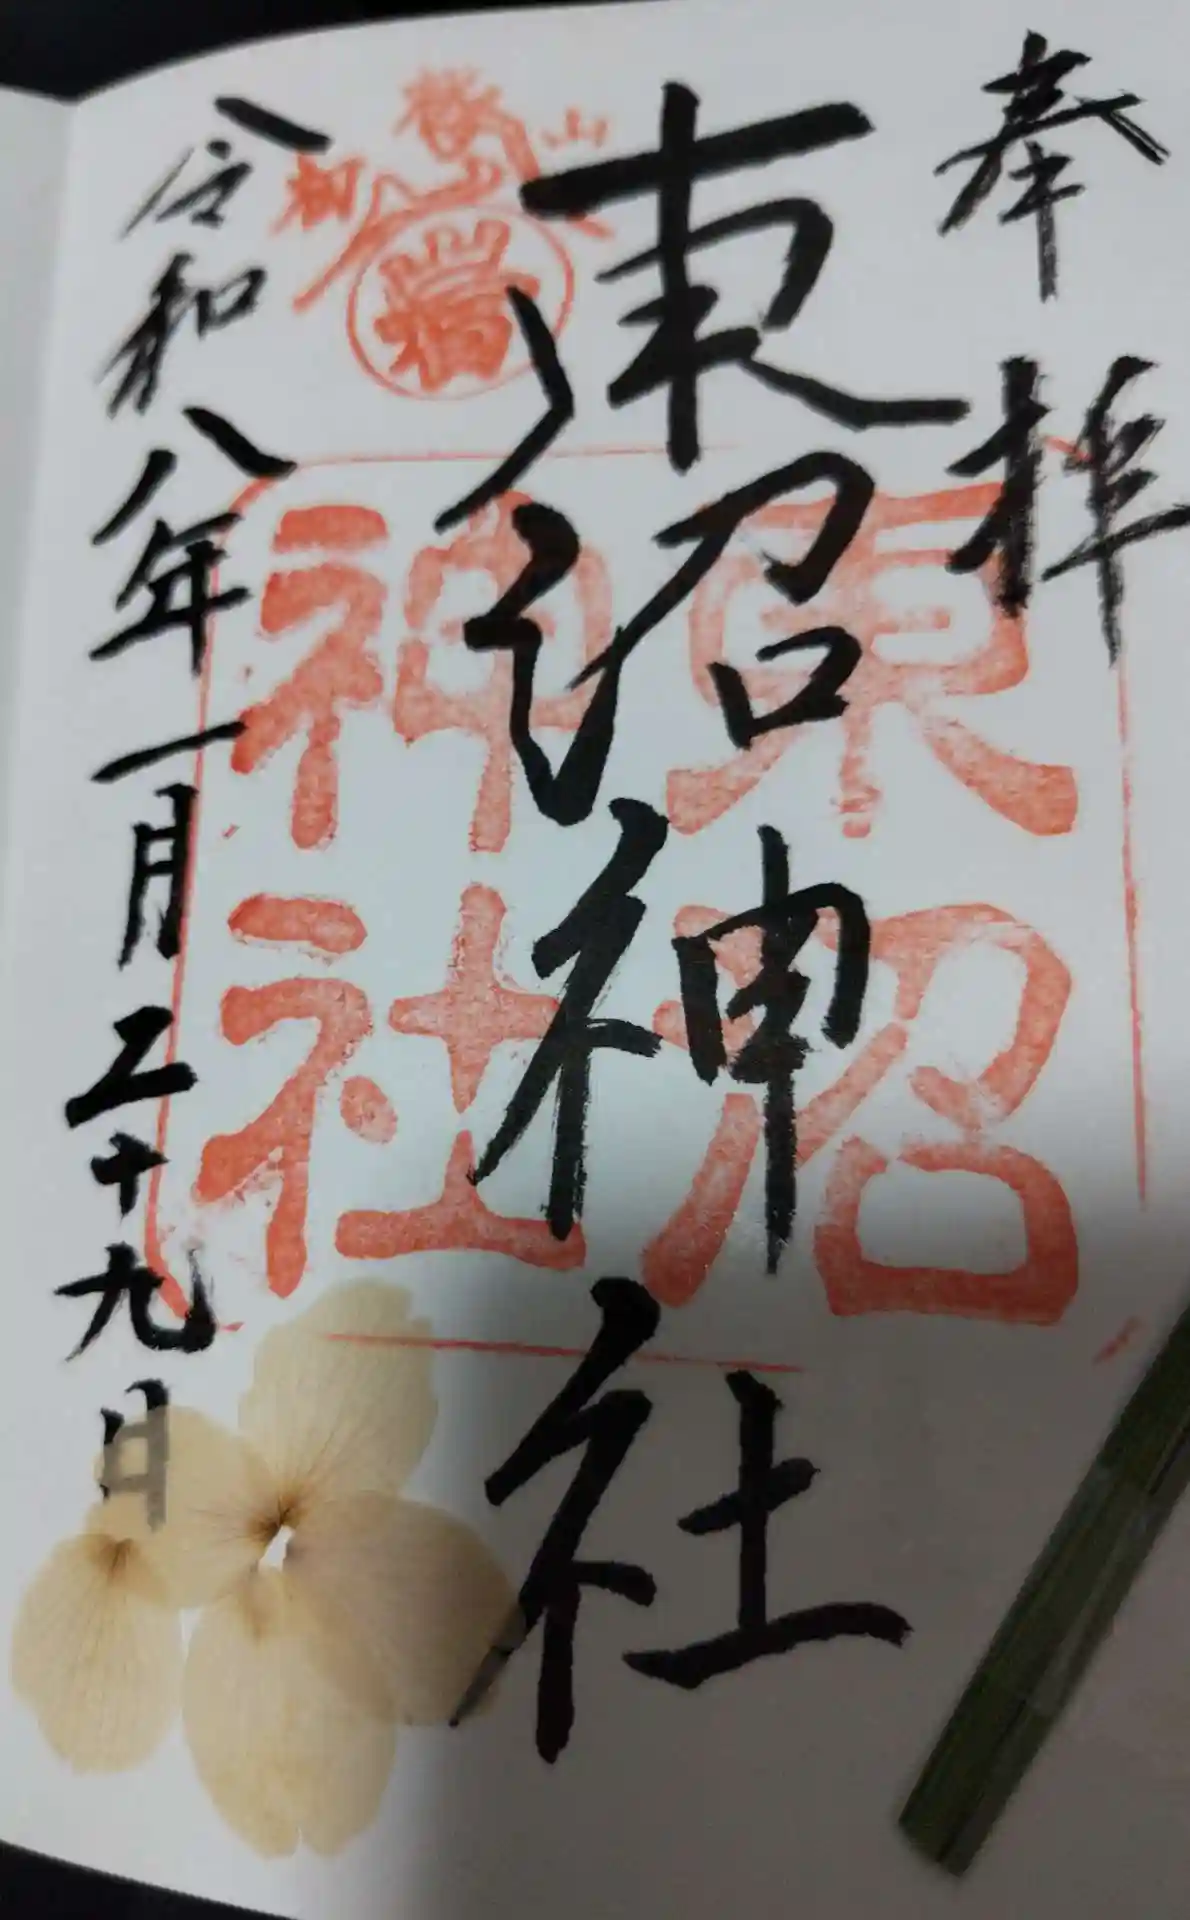 奉拝
東沼神社
東沼神社
令和八年一月二十九日